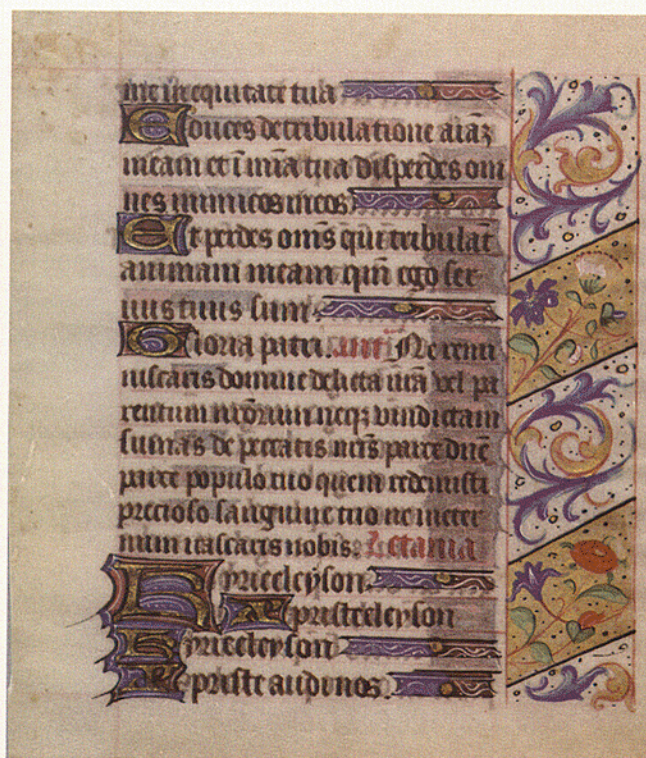 me in equitate tua
Educes de tribulatione aīaȝ
meam et ī mīa tua disperdes om
nes inimicos meos.
Et perdes om̄s qui tribulāt
animam meam qm̄ ego ser
uus tuus sum.
Gloria patri. ant̄ Ne remi
niscaris domine delicta nr̄a vel pa
rentum nr̄orum neqȝ vindictam
sumas de peccatis nr̄is parce dn̄e
parce populo tuo quem redemisti
precioso sanguine tuo ne in eter
num irascaris nobis. Letania
Kyrieeleyson.
Xpristeeleyson
Kyrieeleyson
Xpriste audi nos.